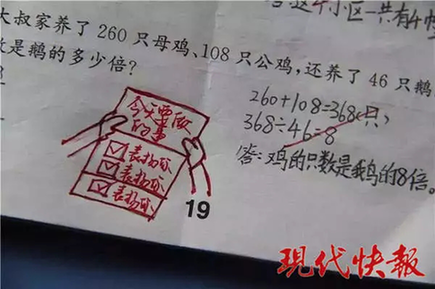 这4个小区一共有4幢
大叔家养了260只母鸡、108只公鸡，还养了46只鹅
数是鹅的多少倍？
260+108=368(只)
368÷46=8
答：鸡的只数是鹅的8倍。
今天要做
的事
表扬你
表扬你
表扬你
19
现代快報